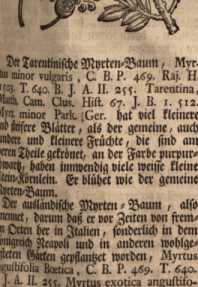 Der Tarentinische Myrten-Baum, Myr-
minor vulgaris, C. B. P. 469. Raj. H.
T. 640. B. J. A. II. 255. Tarentina,
Math. Cam. Clus. Hist. 67. J. B. 1. 512.
minor. Park. [Ger. hat viel kleinere
Blätter, als der gemeine, auch
und kleinere Früchte, die sind am
Theile gekrönet, an der Farbe purpur-
haben innwendig viel weisse kleine
Stein-Körnlein. Er blühet wie der gemeine
Myrten-Baum.
Der ausländische Myrten-Baum, also
darum daß er vor Zeiten von frem-
Orten her in Italien, sonderlich in dem
Königreich Napoli und in anderen wohlge-
Gärten gepflantzet worden, Myrtus
Bœtica, C. B. P. 469. T. 640.
J. A. II. 255. Myrtus exotica angustifo-